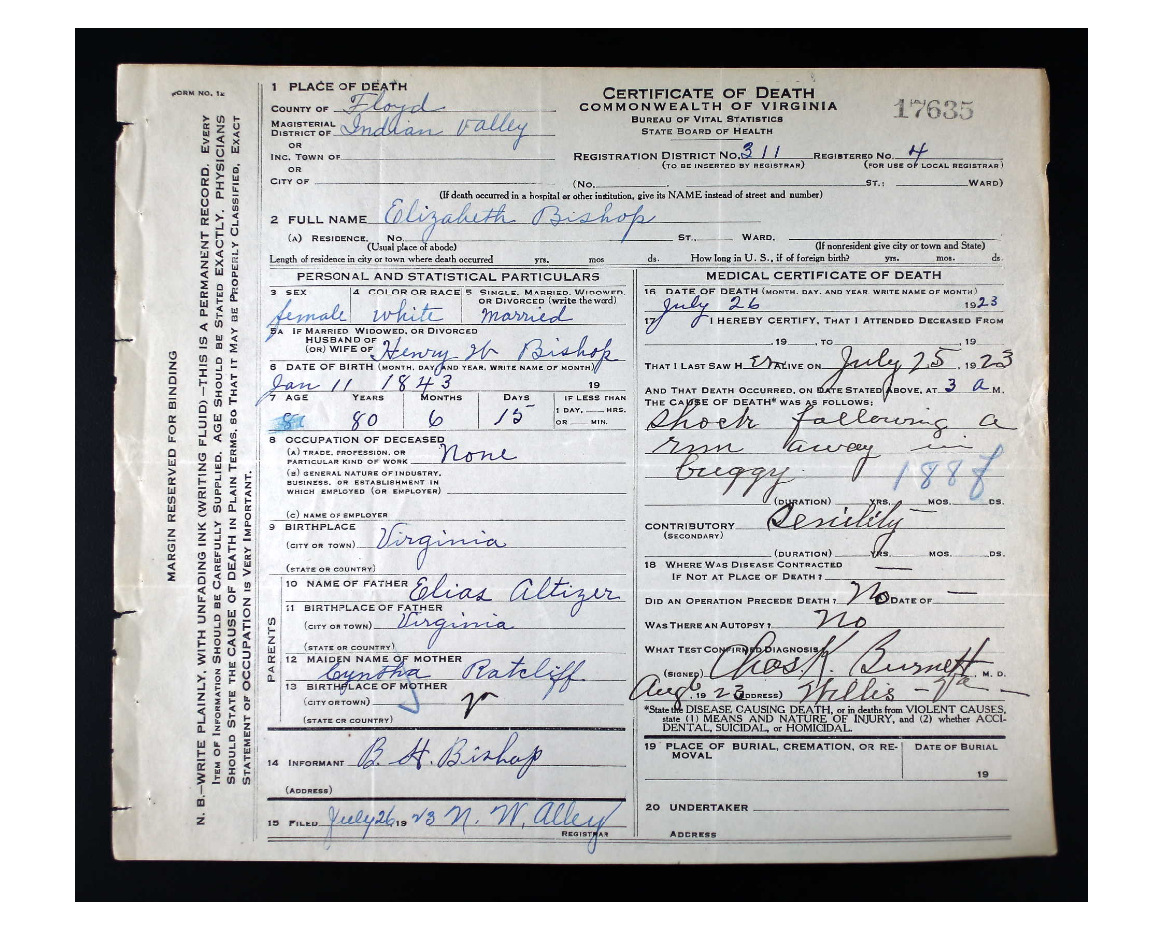 FORM NO. 1A
MARGIN RESERVED FOR BINDING
N. B.—WRITE PLAINLY, WITH UNFADING INK (WRITING FLUID)—THIS IS A PERMANENT RECORD. EVERY
ITEM OF INFORMATION SHOULD BE CAREFULLY SUPPLIED. AGE SHOULD BE STATED EXACTLY. PHYSICIANS
SHOULD STATE THE CAUSE OF DEATH IN PLAIN TERMS, SO THAT IT MAY BE PROPERLY CLASSIFIED. EXACT
STATEMENT OF OCCUPATION IS VERY IMPORTANT.
1 PLACE OF DEATH
COUNTY OF Floyd
MAGISTERIAL
DISTRICT OF Indian Valley
OR
INC. TOWN OF
OR
CITY OF
CERTIFICATE OF DEATH
COMMONWEALTH OF VIRGINIA
BUREAU OF VITAL STATISTICS
STATE BOARD OF HEALTH
17635
REGISTRATION DISTRICT NO. 311 REGISTERED NO. 4
(TO BE INSERTED BY REGISTRAR) (FOR USE OF LOCAL REGISTRAR)
(NO. ST.; WARD)
(If death occurred in a hospital or other institution, give its NAME instead of street and number)
2 FULL NAME Elizabeth Bishop
(A) RESIDENCE, NO. ST., WARD,
(Usual place of abode) (If nonresident give city or town and State)
Length of residence in city or town where death occurred yrs. mos ds. How long in U. S., if of foreign birth? yrs. mos. ds.
PERSONAL AND STATISTICAL PARTICULARS
3 SEX 4 COLOR OR RACE 5 SINGLE, MARRIED, WIDOWED,
OR DIVORCED (write the word)
female white Married
5A IF MARRIED WIDOWED, OR DIVORCED
HUSBAND OF
(OR) WIFE OF Henry W Bishop
6 DATE OF BIRTH (MONTH, DAY, AND YEAR, WRITE NAME OF MONTH)
Jan 11 1843 19
7 AGE YEARS MONTHS DAYS IF LESS THAN
1 DAY, HRS.
OR MIN.
81 80 6 15
8 OCCUPATION OF DECEASED
(A) TRADE, PROFESSION, OR
PARTICULAR KIND OF WORK None
(B) GENERAL NATURE OF INDUSTRY,
BUSINESS, OR ESTABLISHMENT IN
WHICH EMPLOYED (OR EMPLOYER)
(C) NAME OF EMPLOYER
9 BIRTHPLACE
(CITY OR TOWN) Virginia
(STATE OR COUNTRY)
PARENTS
10 NAME OF FATHER Elias Altizer
11 BIRTHPLACE OF FATHER
(CITY OR TOWN) Virginia
(STATE OR COUNTRY)
12 MAIDEN NAME OF MOTHER
Cyntha Ratcliff
13 BIRTHPLACE OF MOTHER
(CITY OR TOWN)
(STATE OR COUNTRY)
14 INFORMANT B. H. Bishop
(ADDRESS)
15 FILED July 26 1923 N. W. Alley
REGISTRAR
MEDICAL CERTIFICATE OF DEATH
16 DATE OF DEATH (MONTH, DAY, AND YEAR WRITE NAME OF MONTH)
July 26 1923
17 I HEREBY CERTIFY, THAT I ATTENDED DECEASED FROM
, 19 , TO , 19
THAT I LAST SAW H er ALIVE ON July 25, 1923
AND THAT DEATH OCCURRED, ON DATE STATED ABOVE, AT 3 a M.
THE CAUSE OF DEATH* WAS AS FOLLOWS:
Shock following a
run away in
buggy. 188
(DURATION) YRS. MOS. DS.
CONTRIBUTORY Senility
(SECONDARY)
(DURATION) YRS. MOS. DS.
18 WHERE WAS DISEASE CONTRACTED
IF NOT AT PLACE OF DEATH? —
DID AN OPERATION PRECEDE DEATH? No DATE OF —
WAS THERE AN AUTOPSY? No
WHAT TEST CONFIRMED DIAGNOSIS
(SIGNED) Chas. K. Burnett, M. D.
Aug 6, 1923 (ADDRESS) Willis – Va –
*State the DISEASE CAUSING DEATH, or in deaths from VIOLENT CAUSES,
state (1) MEANS AND NATURE OF INJURY, and (2) whether ACCI-
DENTAL, SUICIDAL, or HOMICIDAL.
19 PLACE OF BURIAL, CREMATION, OR RE-
MOVAL
DATE OF BURIAL
19
20 UNDERTAKER
ADDRESS